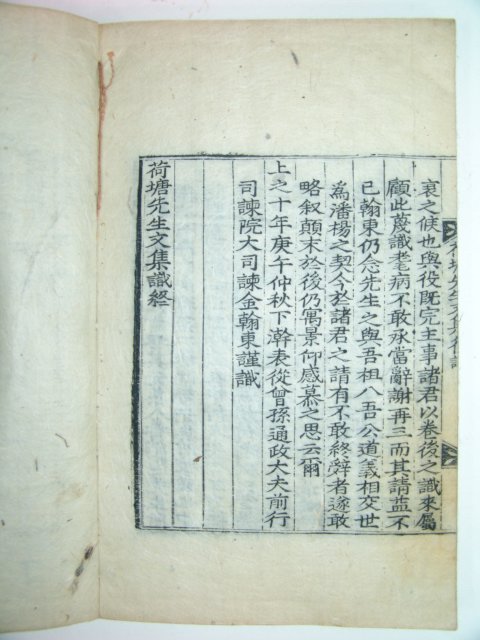 哀之候也與役旣完主事諸君以卷後之識來屬
顧此蔑識耄病不敢承當辭謝再三而其請益不
已翰東仍念先生之與吾祖八吾公道義相交世
爲潘楊之契今於諸君之請有不敢終辭者遂敢
略叙顛末於後仍寓景仰感慕之思云爾
上之十年庚午仲秋下澣表從曾孫通政大夫前行
司諫院大司諫金翰東謹識
荷塘先生文集識終